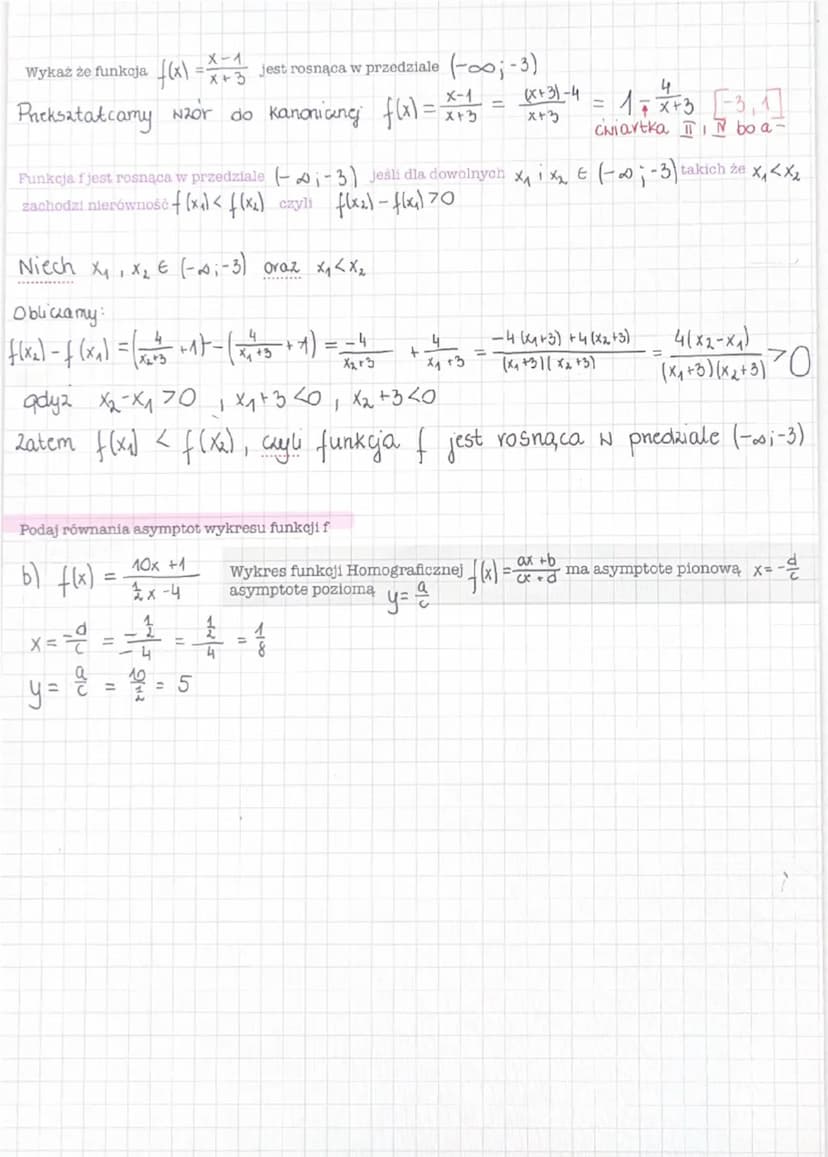 Wykaż że funkcja f(x) = x-1/x+3 jest rosnąca w przedziale (-∞; -3)
Przekształcamy wzór do kanonicznej f(x) = x-1/x+3 = (x+3)-4/x+3 = 1 - 4/x+3 [-3, 1]
ćwiartka II i IV bo a -
Funkcja f jest rosnąca w przedziale (-∞; -3) jeśli dla dowolnych x₁ i x₂ ∈ (-∞; -3) takich że x₁ < x₂
zachodzi nierówność f(x₁) < f(x₂) czyli f(x₂) - f(x₁) > 0
Niech x₁, x₂ ∈ (-∞; -3) oraz x₁ < x₂
Obliczamy:
f(x₂) - f(x₁) = (-4/x₂+3 + 1) - (-4/x₁+3 + 1) = -4/x₂+3 + 4/x₁+3 = -4(x₁+3) + 4(x₂+3)/(x₁+3)(x₂+3) = 4(x₂-x₁)/(x₁+3)(x₂+3) > 0
gdyż x₂-x₁ > 0, x₁+3 < 0, x₂+3 < 0
Zatem f(x₁) < f(x₂), czyli funkcja f jest rosnąca w przedziale (-∞; -3)
Podaj równania asymptot wykresu funkcji f
b) f(x) = 10x +1/½x -4 Wykres funkcji Homograficznej f(x) = ax +b/cx +d ma asymptote pionową x = -d/c
asymptote poziomą y = a/c
x = -d/c = -½/-4 = ½/4 = 1/8
y = a/c = 10/½ = 5